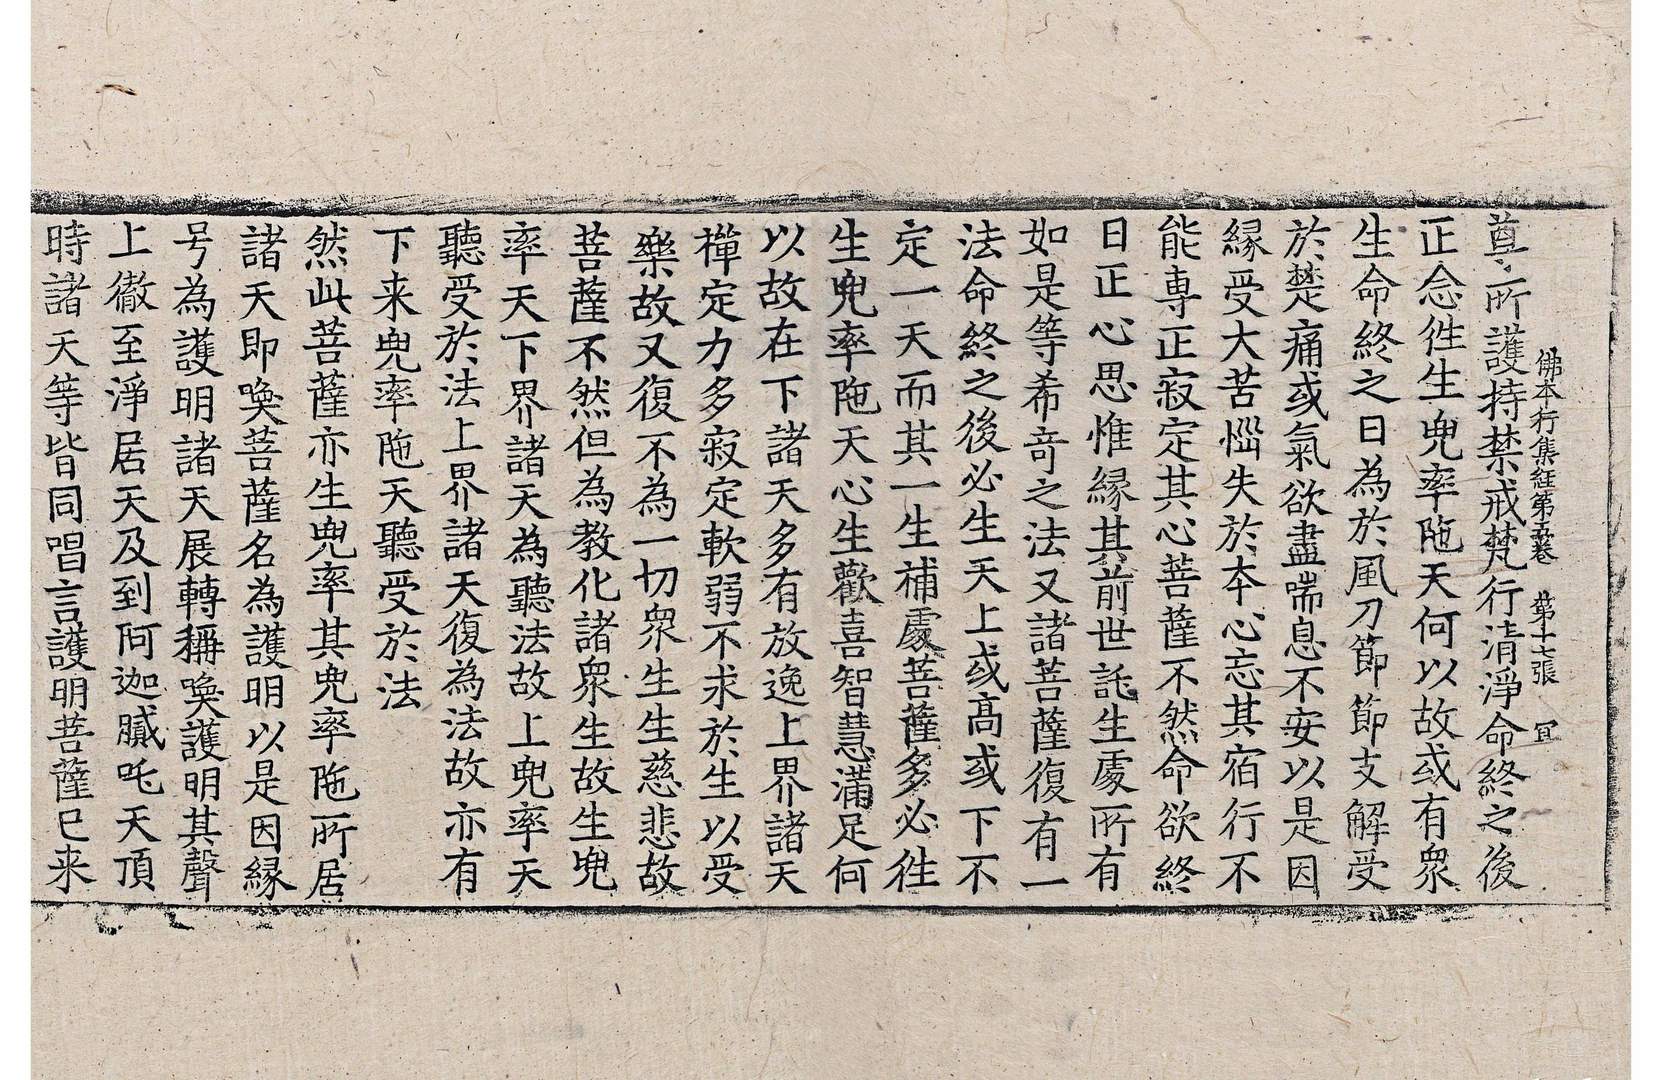 尊所護持禁戒梵行清淨命終之後
佛本行集経第五卷 第十七張 冝
正念徃生兜率陁天何以故或有衆
生命終之日為於風刀節節支解受
於楚痛或氣欲盡喘息不安以是因
縁受大苦惱失於本心忘其宿行不
能專正寂定其心菩薩不然命欲終
日正心思惟縁其前世託生處所有
如是等希竒之法又諸菩薩復有一
法命終之後必生天上或高或下不
定一天而其一生補處菩薩多必徃
生兜率陁天心生歡喜智慧滿足何
以故在下諸天多有放逸上界諸天
禪定力多寂定軟弱不求於生以受
樂故又復不為一切衆生生慈悲故
菩薩不然但為教化諸衆生故生兜
率天下界諸天為聽法故上兜率天
聽受於法上界諸天復為法故亦有
下来兜率陁天聽受於法
然此菩薩亦生兜率其兜率陁所居
諸天即喚菩薩名為護明以是因縁
号為護明諸天展轉稱喚護明其聲
上徹至淨居天及到阿迦膩吒天頂
時諸天等皆同唱言護明菩薩已来